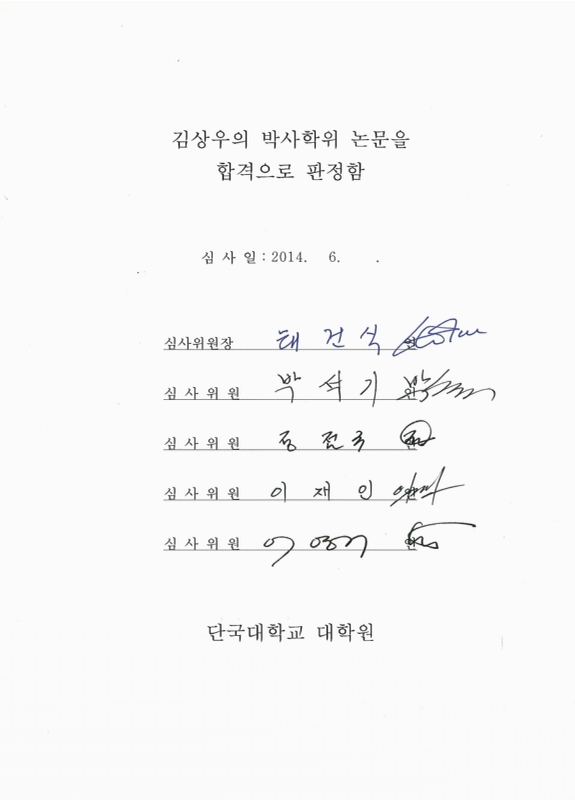 김상우의 박사학위 논문을
합격으로 판정함
심 사 일 : 2014. 6. .
심사위원장 태 건 식 인
심 사 위 원 박 석 기 인
심 사 위 원 정 인
심 사 위 원 이 재 인 인
심 사 위 원 이 인
단국대학교 대학원